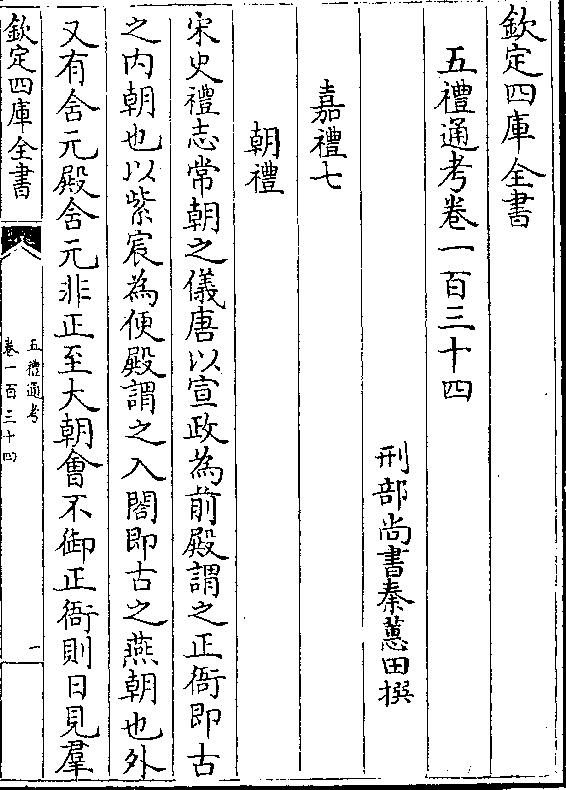 欽定四庫全書
五禮通考卷一百三十四
刑部尚書秦蕙田撰
嘉禮七
朝禮
宋史禮志常朝之儀唐以宣政為前殿謂之正衙即古
之内朝也以紫宸為便殿謂之入閤即古之燕朝也外
又有含元殿含元非正至大朝會不御正衙則日見羣
欽定四庫全書
五禮通考
卷一百三十四
一